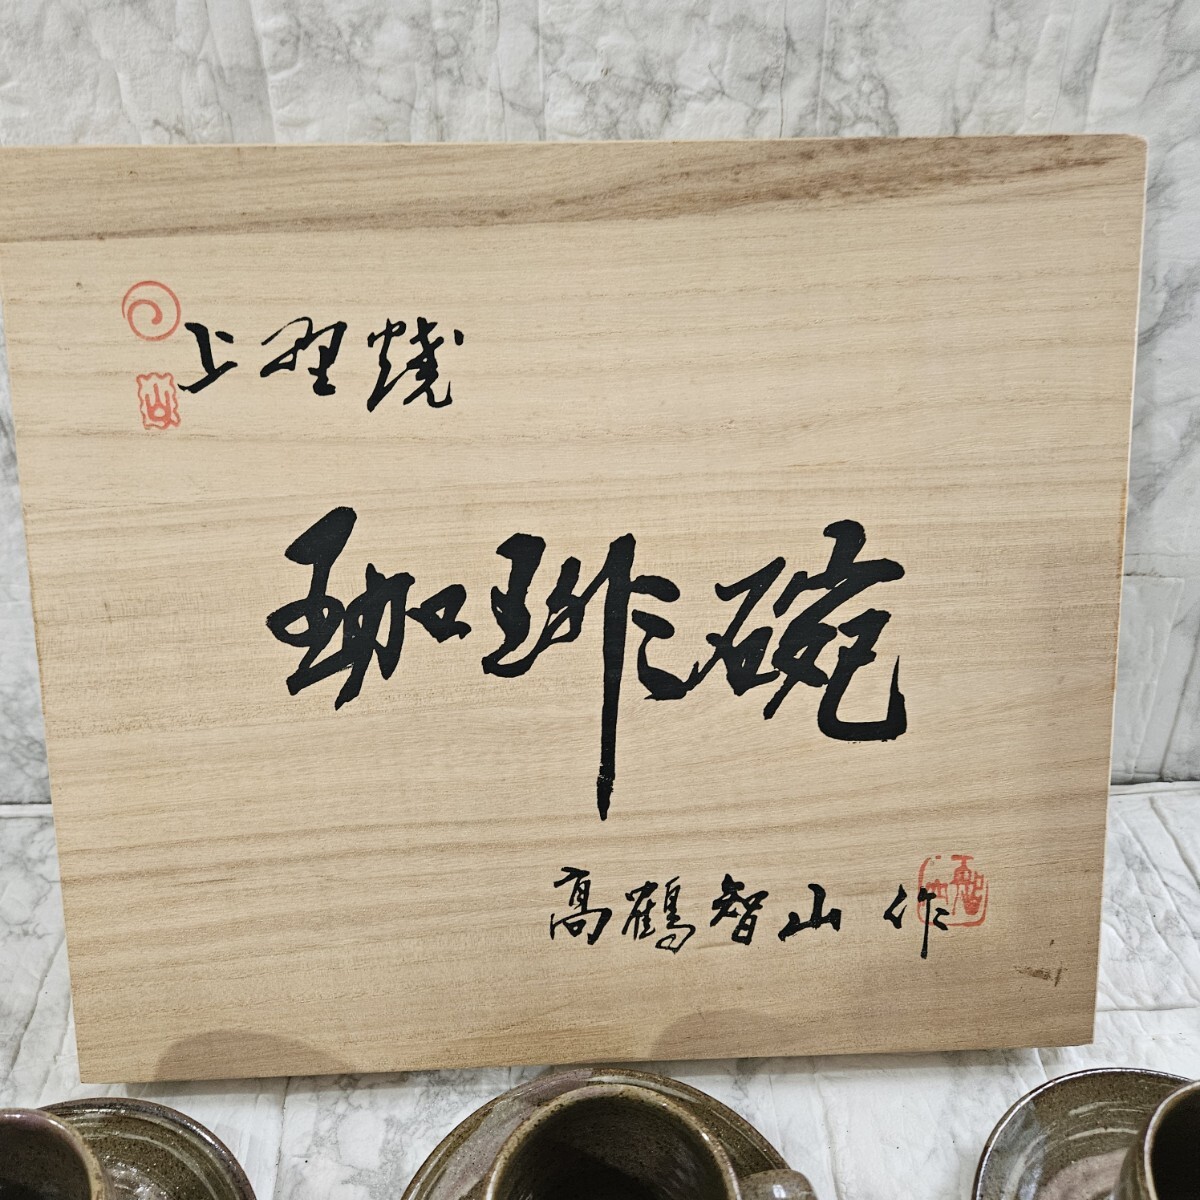 上野焼
珈琲碗
高鶴智山 作